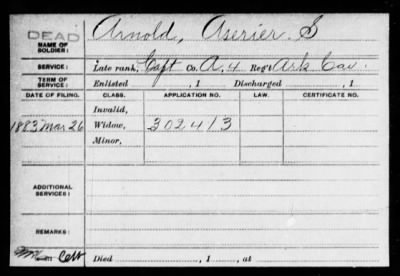 DEAD
NAME OF SOLDIER: Arnold, Aserier. S
SERVICE: Late rank, Capt Co. A. 4 Reg't Ark Cav.
TERM OF SERVICE: Enlisted , 1 Discharged , 1
DATE OF FILING. CLASS. APPLICATION NO. LAW. CERTIFICATE NO.
Invalid,
1883 Mar 26 Widow, 302413
Minor,
ADDITIONAL SERVICES:
REMARKS:
Died , 1 , at